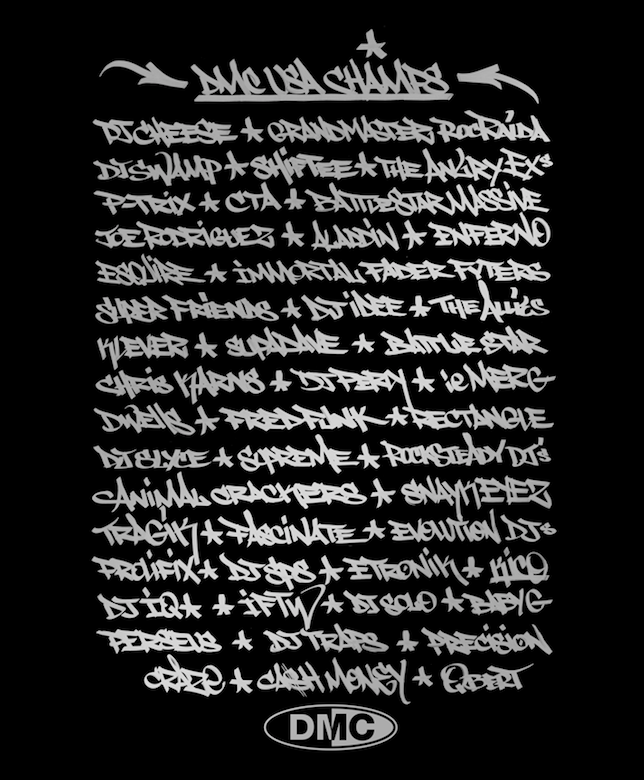 DMC USA CHAMPS
DJ CHEESE * GRANDMASTER ROC RAIDA
DJ SWAMP * SHIFTEE * THE ANGRY EX'S
P-TRIX * CTA * BATTLESTAR MASSIVE
JOE RODRIGUEZ * ALADDIN * ENFERNO
ESQUIRE * IMMORTAL FADER FYTERS
SUPER FRIENDS * DJ IDEE * THE ALLIES
KLEVER * SUPADANE * BATTLE STAR
CHRIS KARNS * DJ PERLY * IE MERG
DWELLS * FRED FUNK * RECTANGLE
DJ SLYCE * SUPREME * ROCKSTEADY DJ'S
ANIMAL CRACKERS * SNAYK EYEZ
TRAGIK * FASCINATE * EVOLUTION DJ'S
PROLIFIX * DJ SPS * ETRONIK * KICO
DJ IQ * * IFTW * DJ SOLO * BABY G
PERSEUS * DJ TRAPS * PRECISION
CRAZE * CASH MONEY * QBERT
DMC